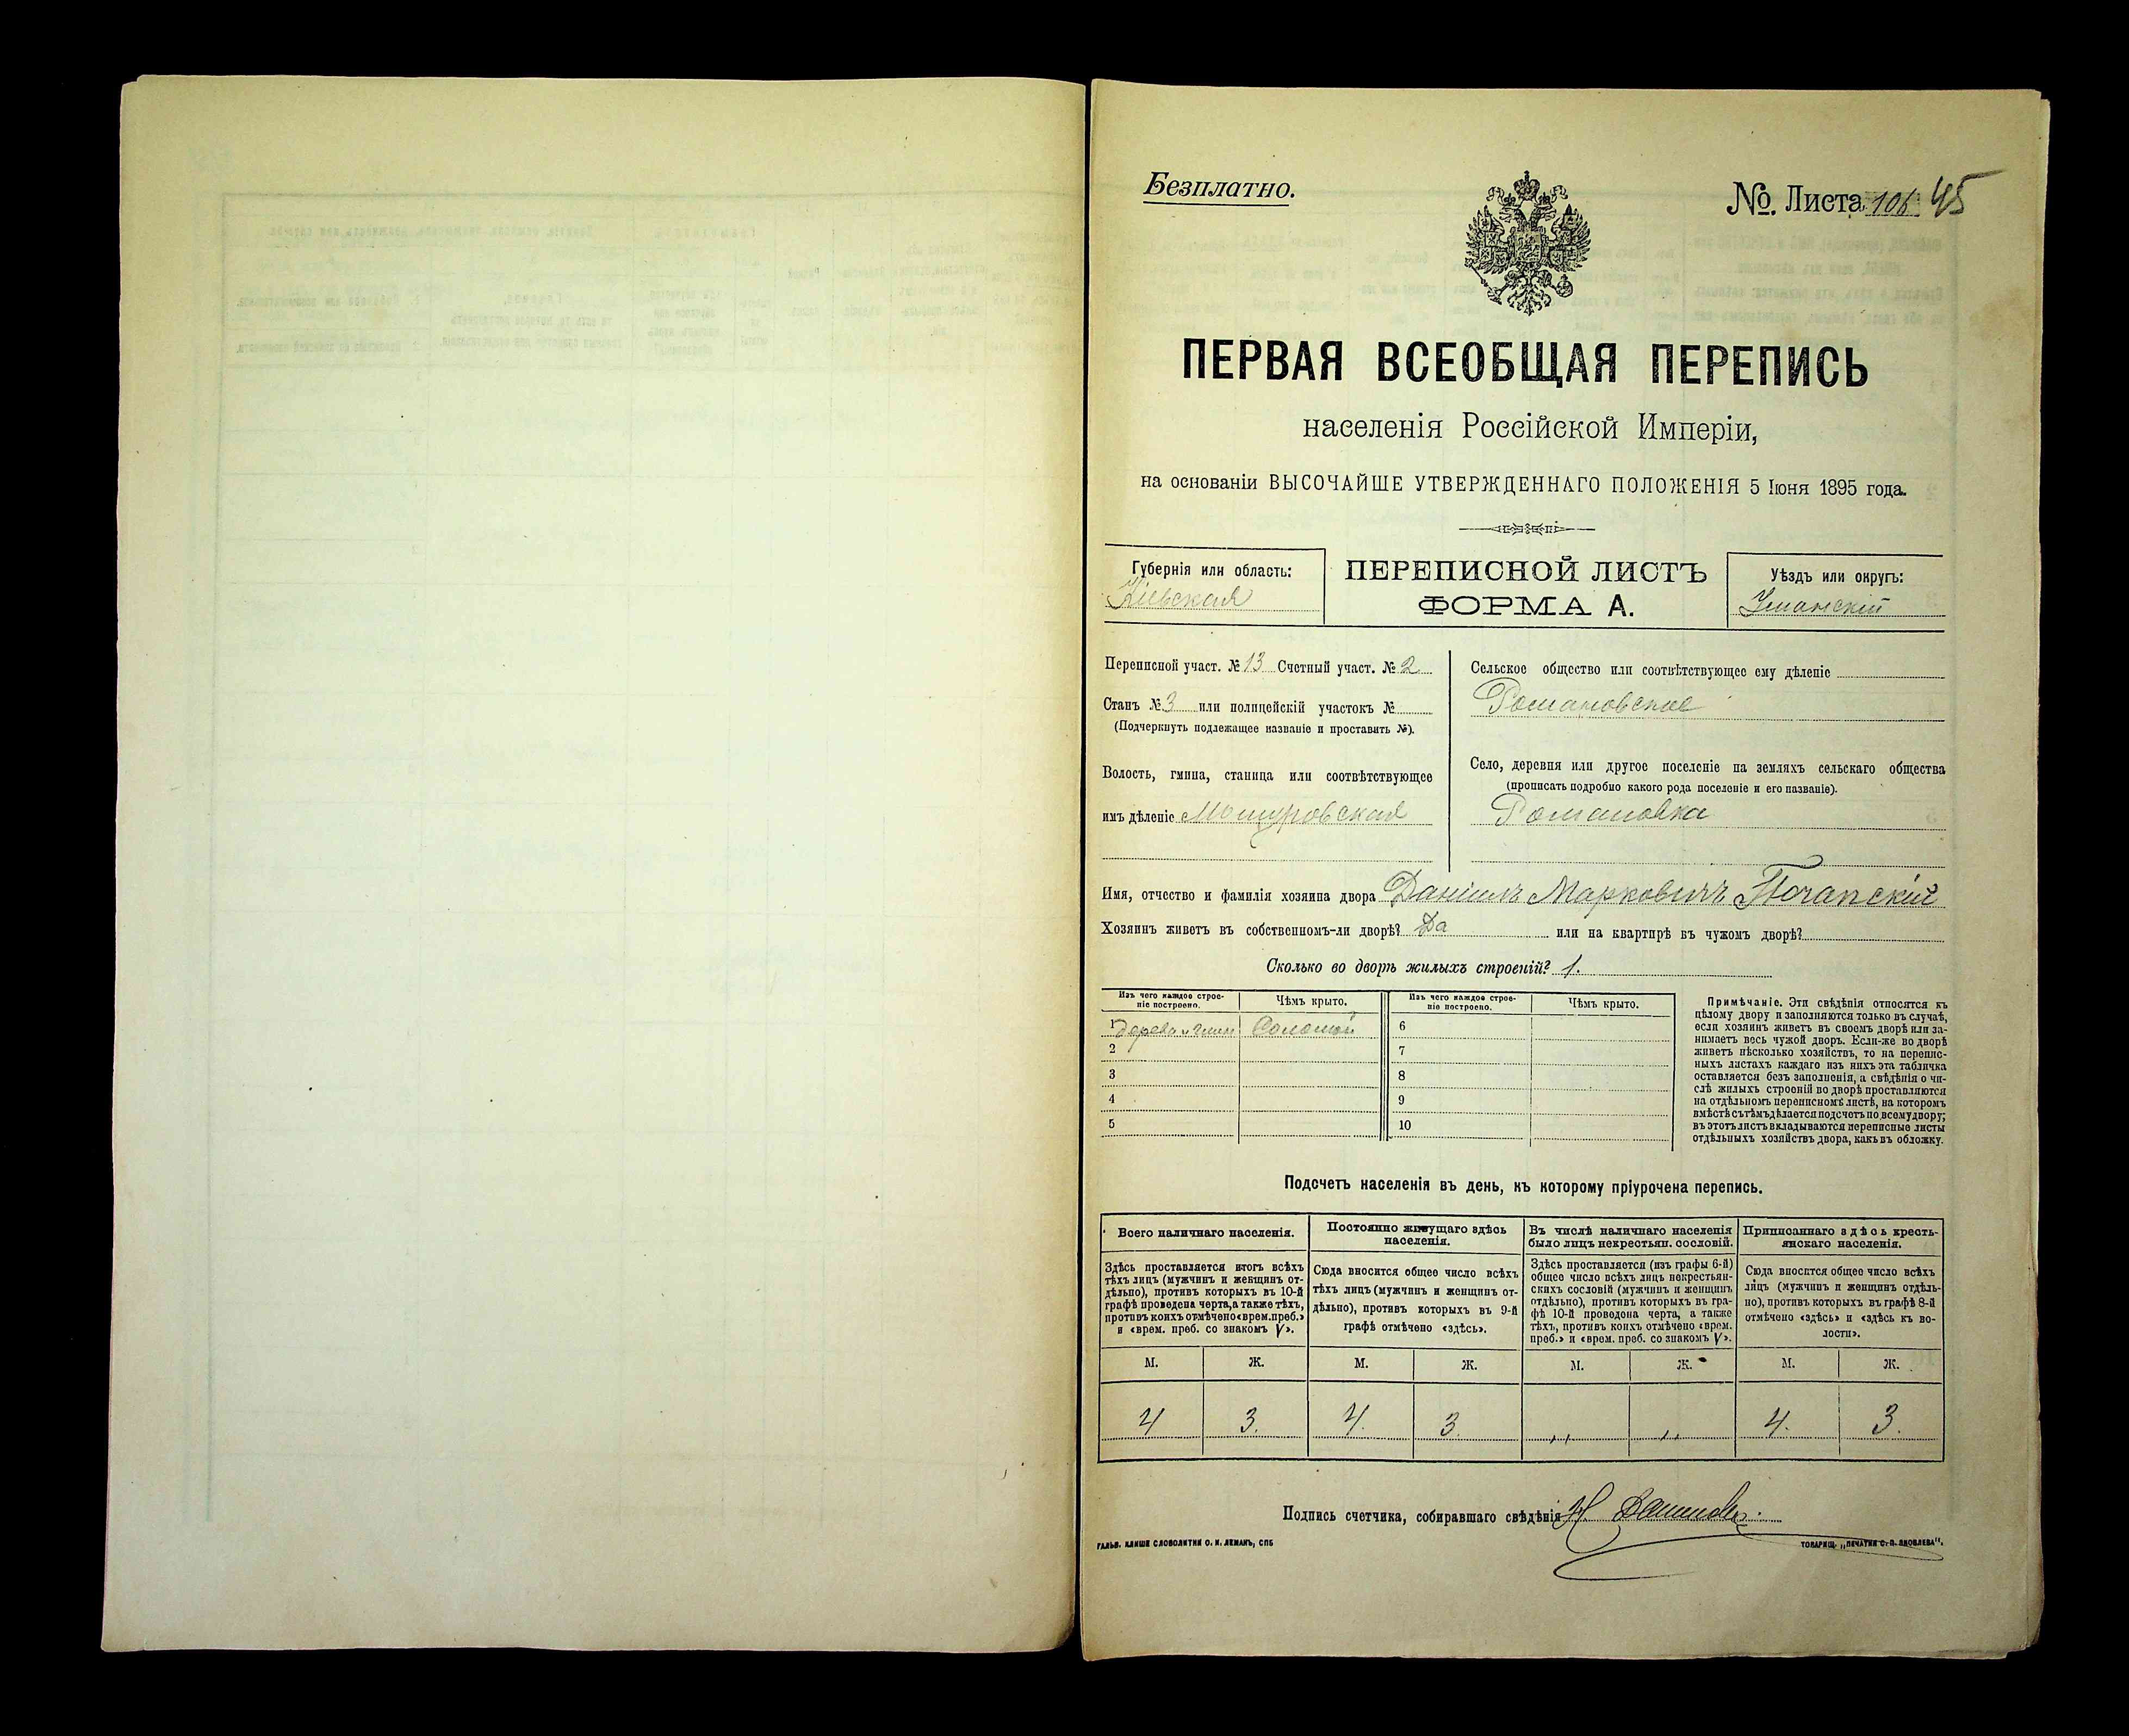 Безплатно.
№. Листа 106. 45
ПЕРВАЯ ВСЕОБЩАЯ ПЕРЕПИСЬ
населенія Россійской Имперіи,
на основаніи ВЫСОЧАЙШЕ УТВЕРЖДЕННАГО ПОЛОЖЕНІЯ 5 Іюня 1895 года.
Губернія или область:
Кіевская
ПЕРЕПИСНОЙ ЛИСТЪ
ФОРМА А.
Уѣздъ или округъ:
Уманскій
Переписной участ. № 13 Счетный участ. № 2
Станъ № 3 или полицейскій участокъ №
(Подчеркнуть подлежащее названіе и проставить №).
Волость, гмина, станица или соотвѣтствующее
имъ дѣленіе Мошуровская
Сельское общество или соотвѣтствующее ему дѣленіе
Романовское
Село, деревня или другое поселеніе на земляхъ сельскаго общества
(прописать подробно какого рода поселеніе и его названіе).
Романовка
Имя, отчество и фамилія хозяина двора Даніилъ Марковичъ Почапскій
Хозяинъ живетъ въ собственномъ-ли дворѣ? Да или на квартирѣ въ чужомъ дворѣ?
Сколько во дворѣ жилыхъ строеній? 1.
Изъ чего каждое строе-
ніе построено.
Чѣмъ крыто.
Изъ чего каждое строе-
ніе построено.
Чѣмъ крыто.
1 Дерева и глины Соломой 6
2 7
3 8
4 9
5 10
Примѣчаніе. Эти свѣдѣнія относятся къ
цѣлому двору и заполняются только въ случаѣ,
если хозяинъ живетъ въ своемъ дворѣ или за-
нимаетъ весь чужой дворъ. Если-же во дворѣ
живетъ нѣсколько хозяйствъ, то на перепис-
ныхъ листахъ каждаго изъ нихъ эта табличка
оставляется безъ заполненія, а свѣдѣнія о чи-
слѣ жилыхъ строеній во дворѣ проставляются
на отдѣльномъ переписномъ листѣ, на которомъ
вмѣстѣ съ тѣмъ дѣлается подсчетъ по всему двору;
въ этотъ листъ вкладываются переписные листы
отдѣльныхъ хозяйствъ двора, какъ въ обложку.
Подсчетъ населенія въ день, къ которому пріурочена перепись.
Всего наличнаго населенія.
Здѣсь проставляется итогъ всѣхъ
тѣхъ лицъ (мужчинъ и женщинъ от-
дѣльно), противъ которыхъ въ 10-й
графѣ проведена черта, а также тѣхъ,
противъ коихъ отмѣчено «врем. преб.»
и «врем. преб. со знакомъ V».
Постоянно живущаго здѣсь
населенія.
Сюда вносится общее число всѣхъ
тѣхъ лицъ (мужчинъ и женщинъ от-
дѣльно), противъ которыхъ въ 9-й
графѣ отмѣчено «здѣсь».
Въ числѣ наличнаго населенія
было лицъ некрестьян. сословій.
Здѣсь проставляется (изъ графы 6-й)
общее число всѣхъ лицъ некрестьян-
скихъ сословій (мужчинъ и женщинъ
отдѣльно), противъ которыхъ въ гра-
фѣ 10-й проведена черта, а также
тѣхъ, противъ коихъ отмѣчено «врем.
преб.» и «врем. преб. со знакомъ V».
Приписаннаго здѣсь кресть-
янскаго населенія.
Сюда вносится общее число всѣхъ
лицъ (мужчинъ и женщинъ отдѣль-
но), противъ которыхъ въ графѣ 8-й
отмѣчено «здѣсь» и «здѣсь къ во-
лости».
М. Ж. М. Ж. М. Ж. М. Ж.
4 3. 4. 3. ,, ,, 4. 3.
Подпись счетчика, собиравшаго свѣдѣнія Н
ГАЛЬВ. КЛИШЕ СЛОВОЛИТНИ О. И. ЛЕМАНЪ, СПБ
ТОВАРИЩ. „ПЕЧАТНЯ С. П. ЯКОВЛЕВА“.